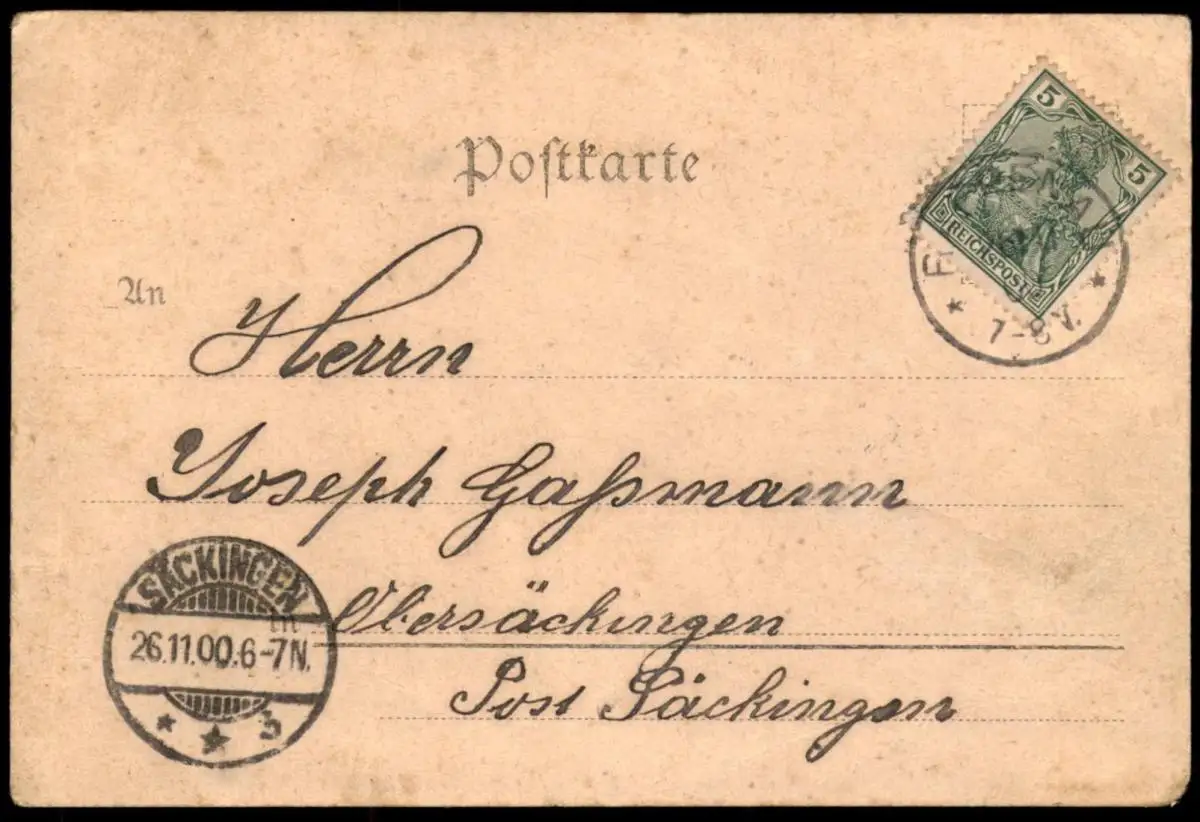 Postkarte
5
5
REICHSPOST
7-8 V.
An
Herrn
Joseph Gaßmann
SÄCKINGEN
in
26.11.00.6-7N.
Obersäckingen
Post Säckingen
* * 3